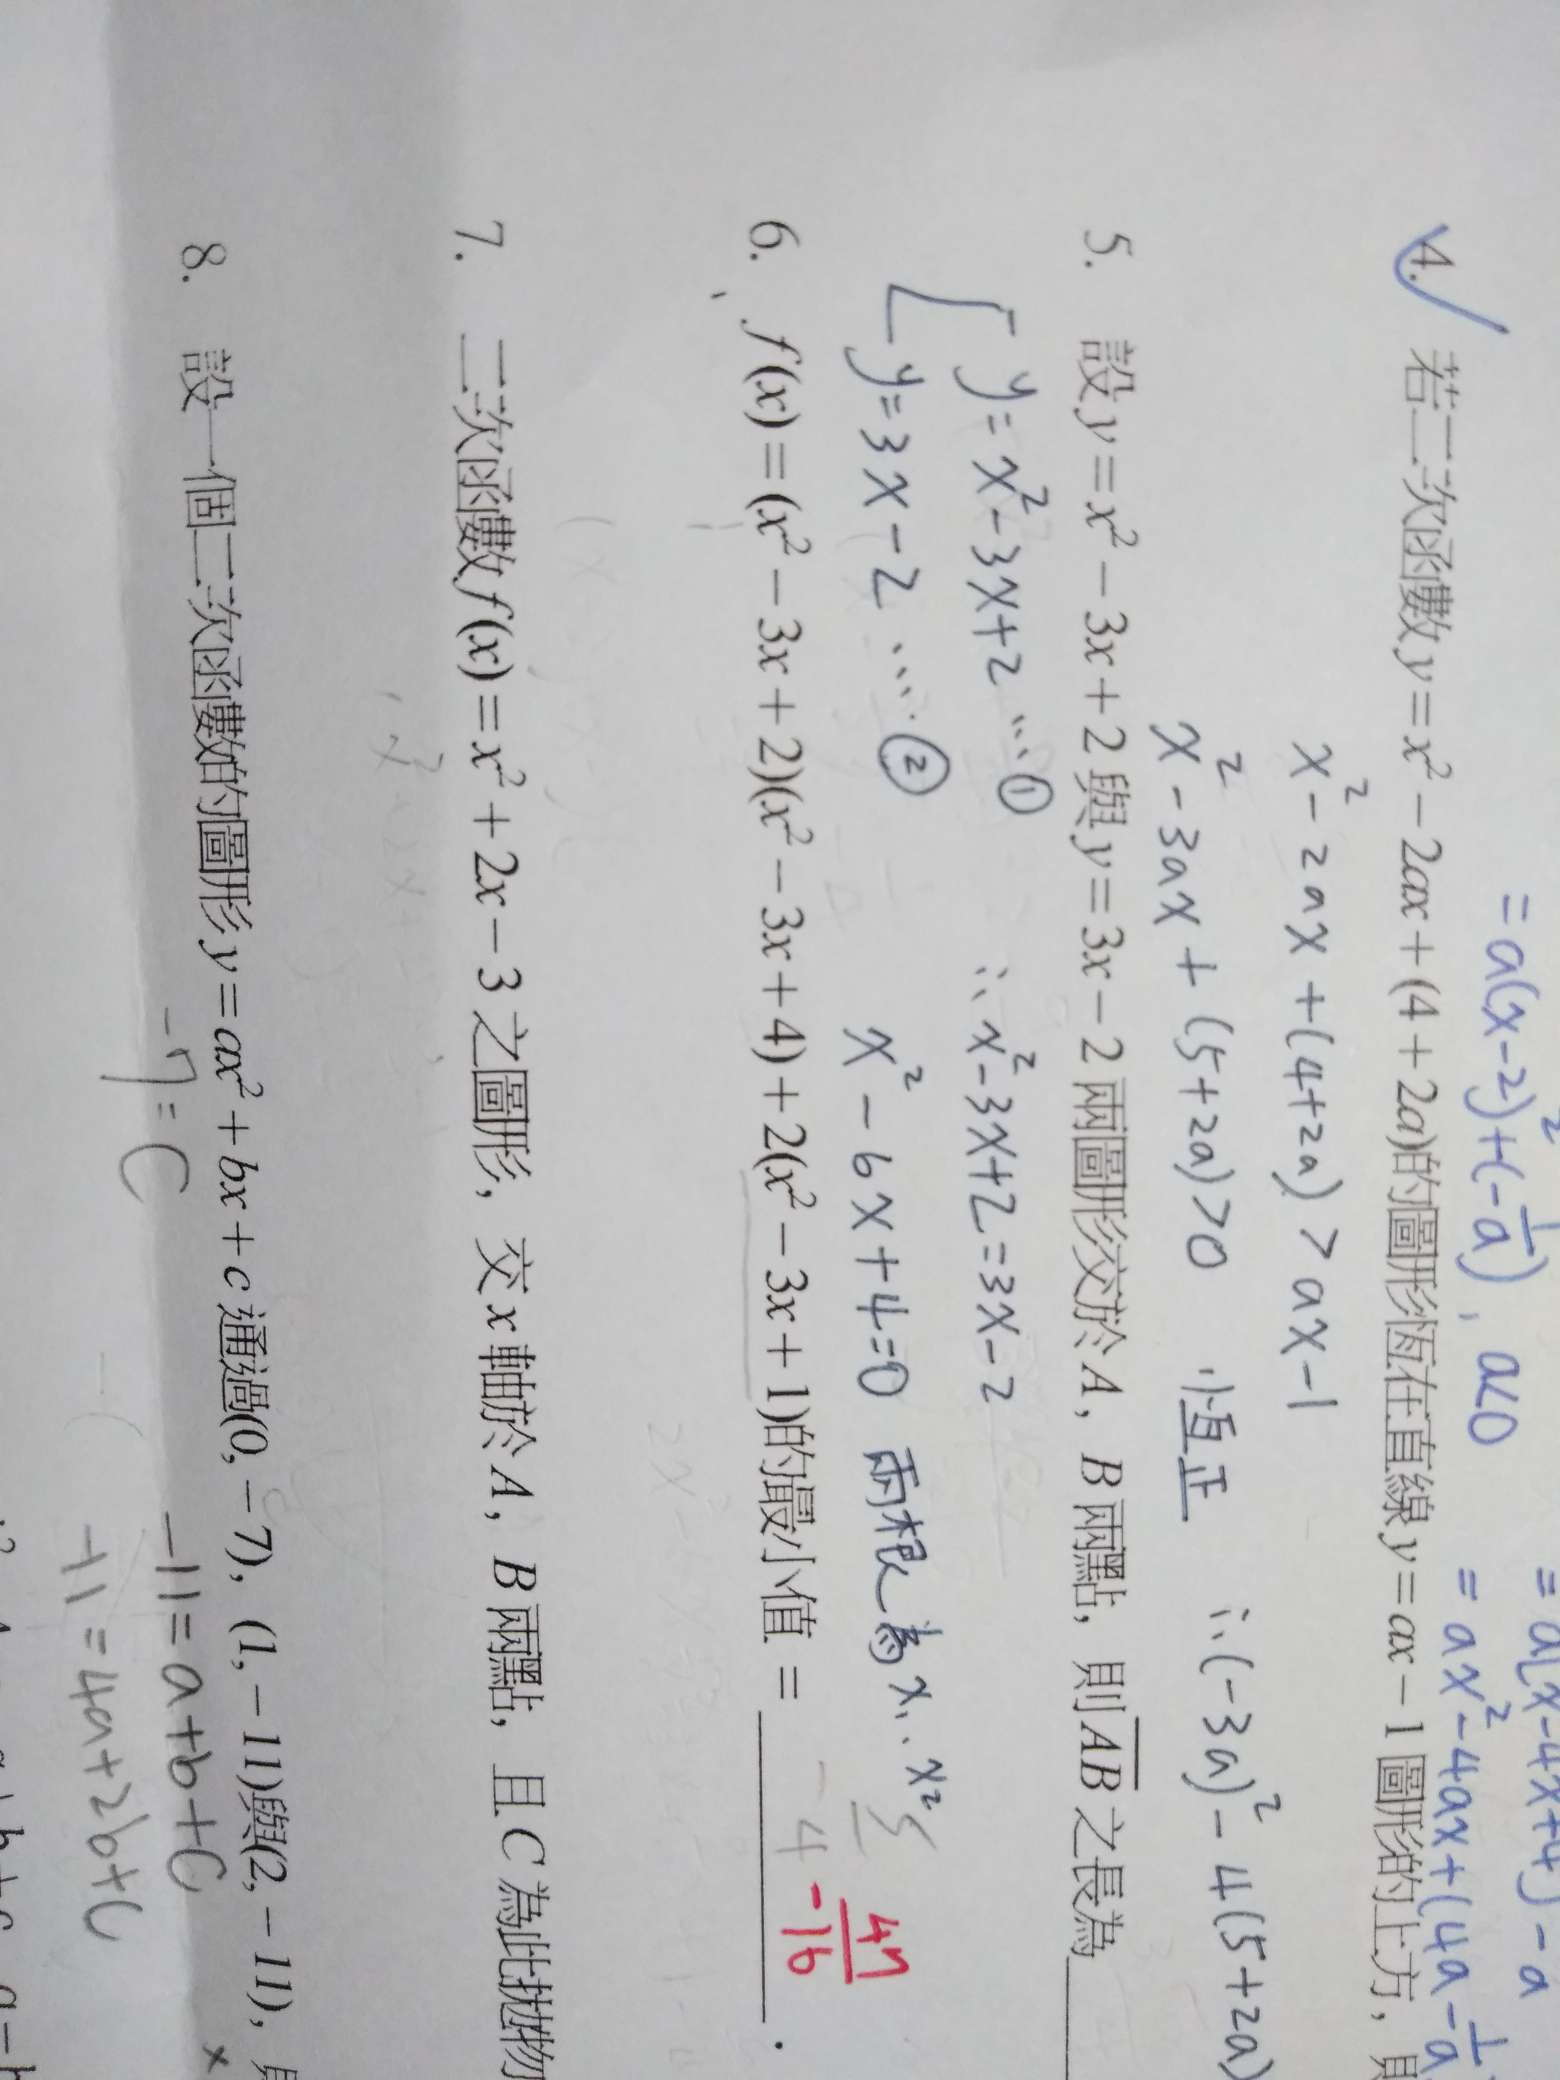 = a(x-4x+4)-a
= a(x-2)²+(-1/a), a<0
= ax²-4ax+(4a-1/a
4. 若二次函數y=x²-2ax+(4+2a)的圖形恆在直線y=ax-1圖形的上方，
x²-2ax+(4+2a)>ax-1
x²-3ax+(5+2a)>0 恆正 ∴(-3a)²-4(5+2a)
5. 設y=x²-3x+2與y=3x-2兩圖形交於A，B兩點，則AB之長為
y=x²-3x+2 …① ∴x²-3x+2=3x-2
y=3x-2 …② x²-6x+4=0 兩根為x₁、x₂
6. f(x)=(x²-3x+2)(x²-3x+4)+2(x²-3x+1)的最小值=______.
-4
47
-16
7. 二次函數f(x)=x²+2x-3之圖形，交x軸於A，B兩點，且C為此拋物
8. 設一個二次函數的圖形y=ax²+bx+c通過(0,-7)，(1,-11)與(2,-11)，
-7=C
-11=a+b+C
-11=4a+2b+C